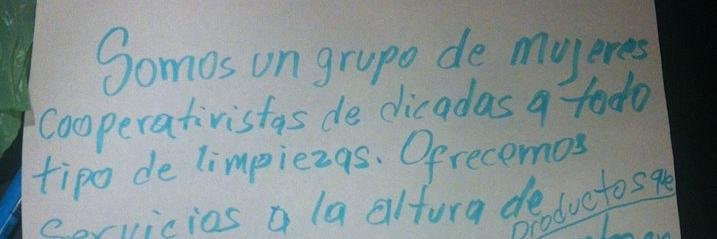 Somos un grupo de mujeres
cooperativistas de dicadas a todo
tipo de limpiezas. Ofrecemos
servicios a la altura de
productos que